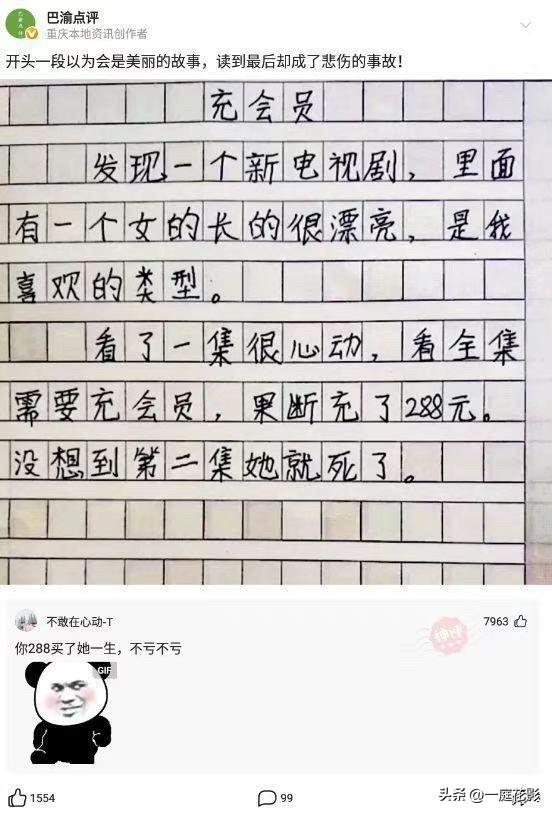 巴渝点评
重庆本地资讯创作者
开头一段以为会是美丽的故事，读到最后却成了悲伤的事故！
充会员
发现一个新电视剧，里面
有一个女的长的很漂亮，是我
喜欢的类型。
看了一集很心动，看全集
需要充会员，果断充了288元。
没想到第二集她就死了。
不敢在心动-T
7963
神评
你288买了她一生，不亏不亏
GIF
1554
99
头条 @一庭花影